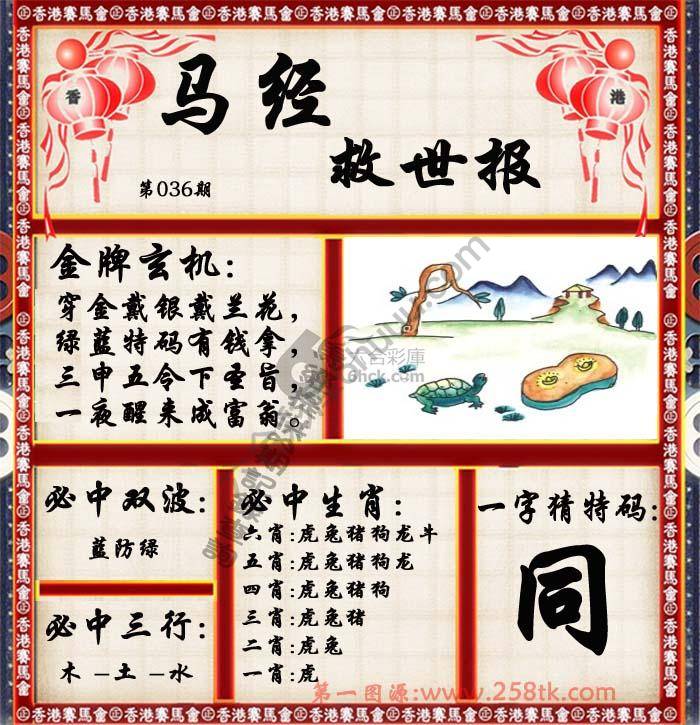 香港賽馬會
香 港
马经
救世报
第036期
金牌玄机:
穿金戴银戴兰花,
绿蓝特码有钱拿,
三申五令下圣旨,
一夜醒来成富翁。
必中双波:
蓝防绿
必中三行:
木–土–水
必中生肖:
六肖:虎兔猪狗龙牛
五肖:虎兔猪狗龙
四肖:虎兔猪狗
三肖:虎兔猪
二肖:虎兔
一肖:虎
一字猜特码:
同
第一图源:www.258tk.com